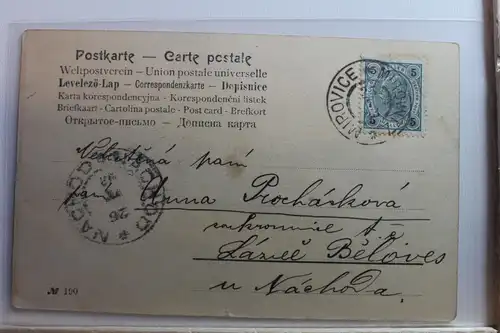 Postkarte — Carte postale
Weltpostverein - Union postale universelle
Levelező-Lap — Correspondenzkarte — Dopisnice
Karta korespondencyjna - Korespondenční listek
Briefkaart - Cartolina postale - Post card - Brefkort
Открытое-письмо — Дописна карта
5 5
5 5
MIROVICE
NÁCHOD
26
paní
Anna Procházková
Lázně Běloves
u Náchoda.
№ 190